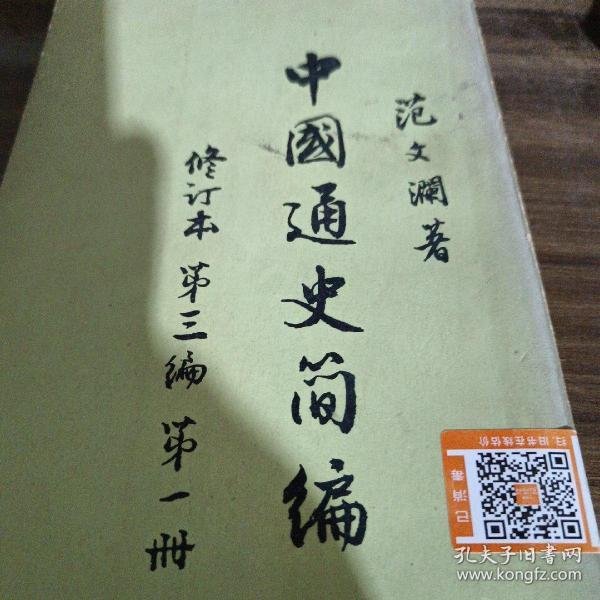 范文瀾著
中國通史简編
修订本 第三編 第一冊
扫.旧书在线估价
已消毒
孔夫子旧书网
www.kongfz.com